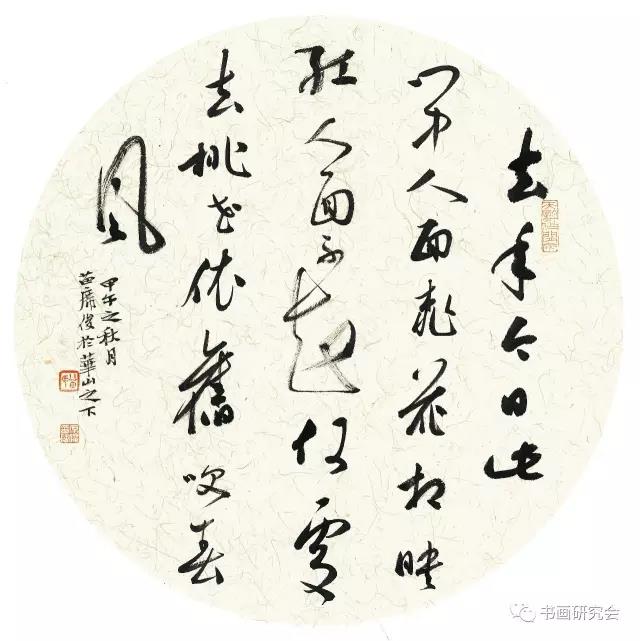 去年今日此
门中人面桃花相映
红人面不何處
去桃花依舊咲春
风
甲午之秋月
苗席俊於華山之下
书画研究会